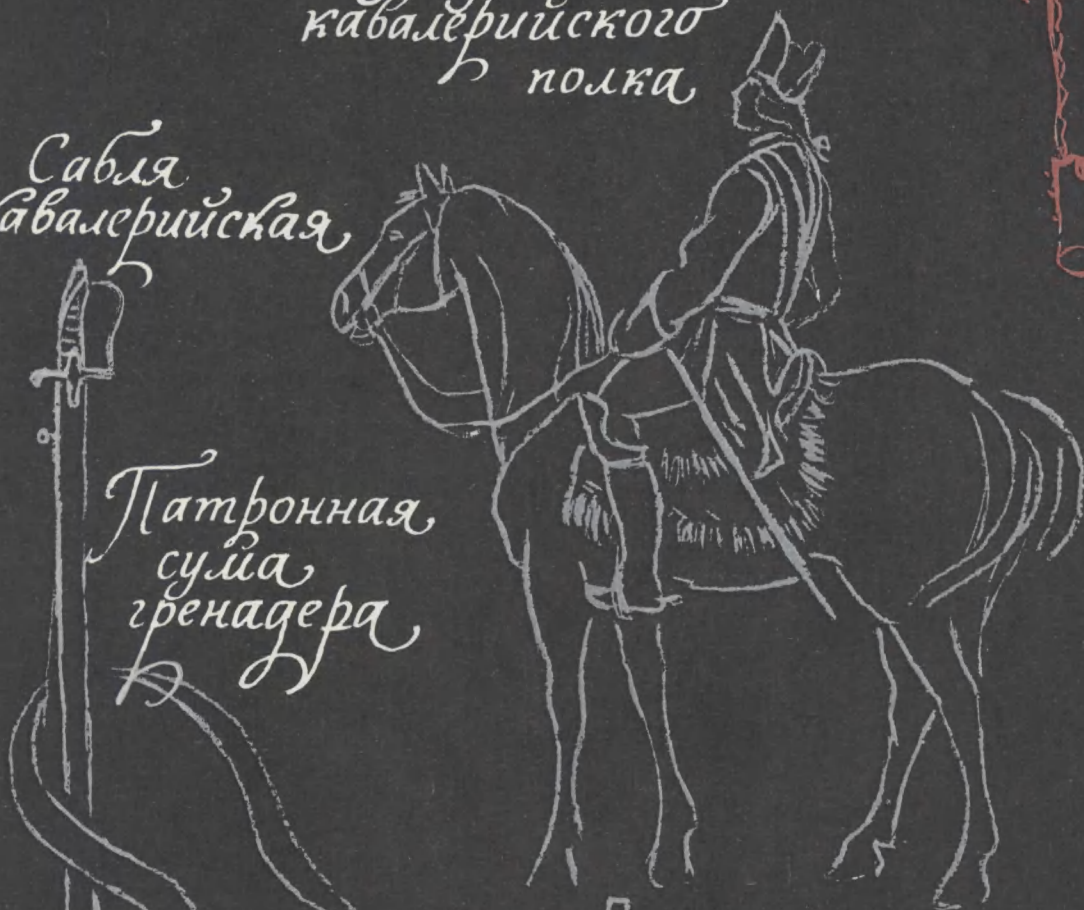 кавалерийского
полка
Сабля
авалерийская
Патронная
сума
гренадера